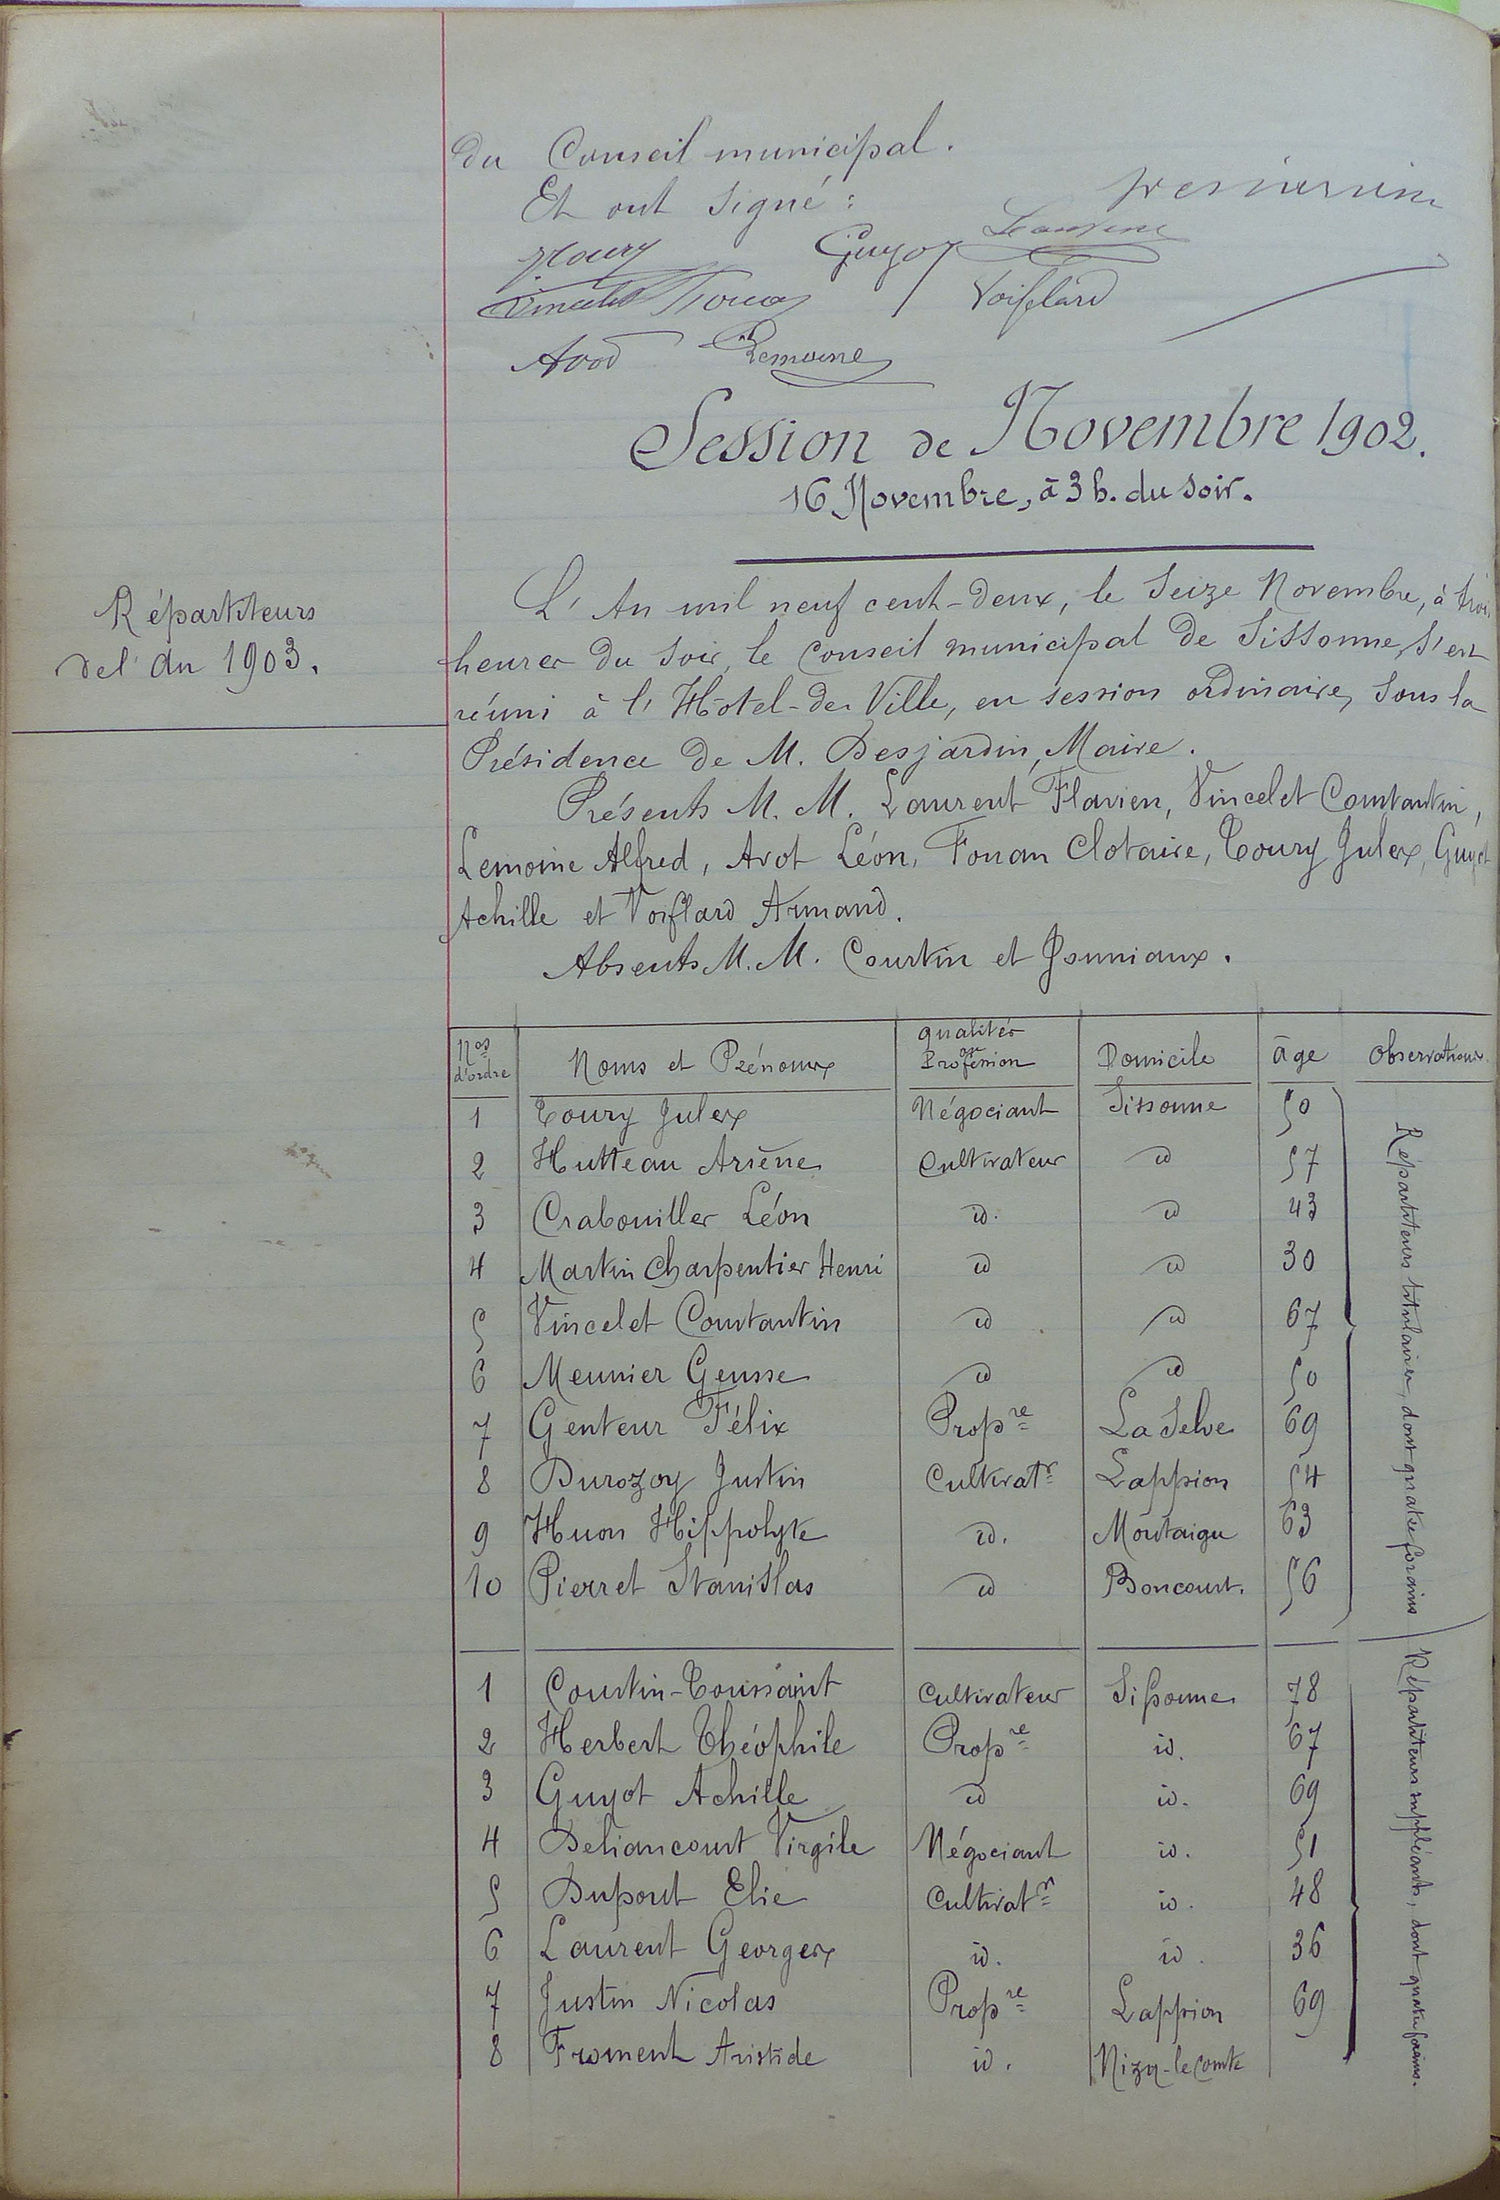 du Conseil municipal.
Et ont signé :
Desjardin
Toury Guyot Laurent
Vincelet Fouan Voiflard
Avot Lemoine
Session de Novembre 1902.
16 Novembre, à 3 h. du soir.
Répartiteurs
de l'An 1903.
L'An mil neuf cent-deux, le Seize Novembre, à trois
heures du soir, le Conseil municipal de Sissonne, s'est
réuni à l'Hôtel-de-Ville, en session ordinaire, sous la
Présidence de M. Desjardin, Maire.
Présents M. M. Laurent Flavien, Vincelet Constantin,
Lemoine Alfred, Avot Léon, Fouan Clotaire, Toury Jules, Guyot
Achille et Voiflard Armand.
Absents M. M. Courtin et Jonniaux.
Nos d'ordre Noms et Prénoms qualités ou Profession Domicile âge Observations
1 Toury Jules Négociant Sissonne 50
2 Hutteau Arsène Cultivateur id 57
3 Crabouiller Léon id. id 43
4 Martin Charpentier Henri id id 30
5 Vincelet Constantin id id 67
6 Meunier Gensse id id 50
7 Genteur Félix Propre La Selve 69
8 Durozoy Justin Cultivatr Lappion 54
9 Huon Hippolyte id. Montaigu 63
10 Pierret Stanislas id Boncourt. 56
Répartiteurs titulaires, dont quatre forains
1 Courtin-Toussaint Cultivateur Sissonne 78
2 Herbert Théophile Propre id. 67
3 Guyot Achille id id. 69
4 Deliancourt Virgile Négociant id. 51
5 Dupont Elie Cultivatr id. 48
6 Laurent Georges id. id. 36
7 Justin Nicolas Propre Lappion 69
8 Froment Aristide id. Nizy-le Comte
Répartiteurs suppléants, dont quatre forains.